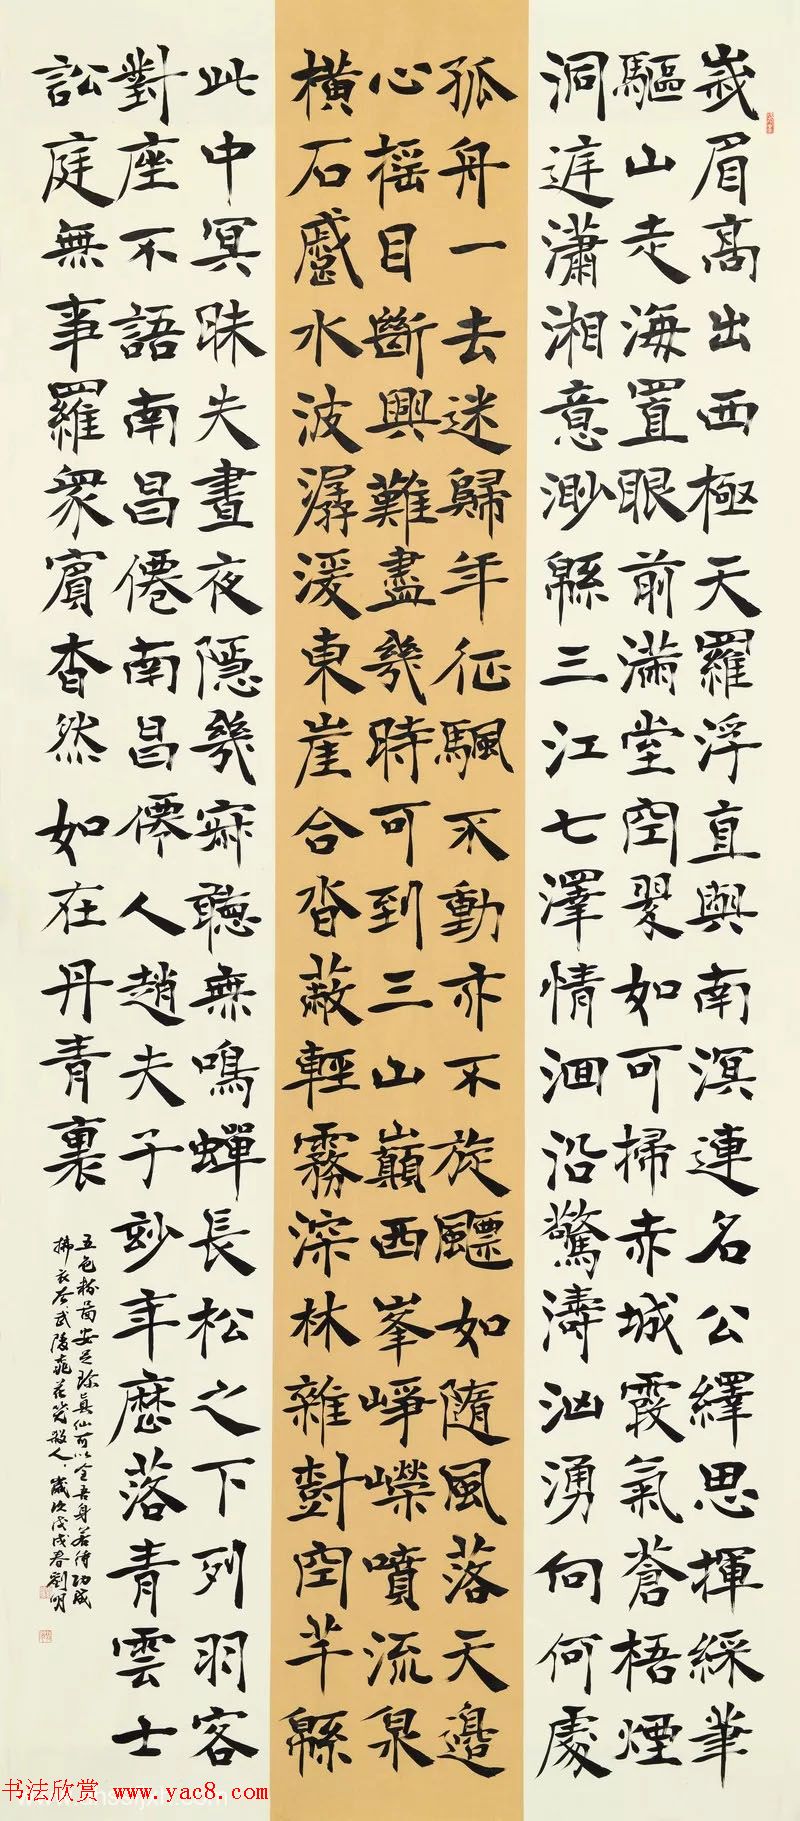 峩眉高出西極天羅浮直與南溟連名公繹思揮綵筆
驅山走海置眼前滿堂空翠如可掃赤城霞氣蒼梧煙
洞庭瀟湘意渺緜三江七澤情洄沿驚濤洶湧向何處
孤舟一去迷歸年征颿不動亦不旋飄如隨風落天邊
心搖目斷興難盡幾時可到三山巔西峯崢嶸噴流泉
橫石蹙水波潺湲東崖合沓蔽輕霧深林雜樹空芊緜
此中冥昧失晝夜隱幾寂聽無鳴蟬長松之下列羽客
對座不語南昌僊南昌僊人趙夫子妙年歷落青雲士
訟庭無事羅衆賓杳然如在丹青裏
五色粉圖安足珍真仙可以全吾身若待功成
拂衣去武陵桃花笑殺人 歲次戊戌春劉明
书法欣赏 www.yac8.com